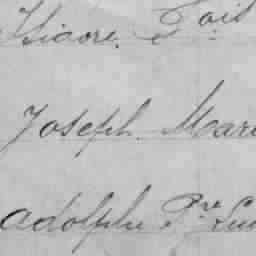 Isidore. Fois
Joseph Mari
adolphe Pre Lu